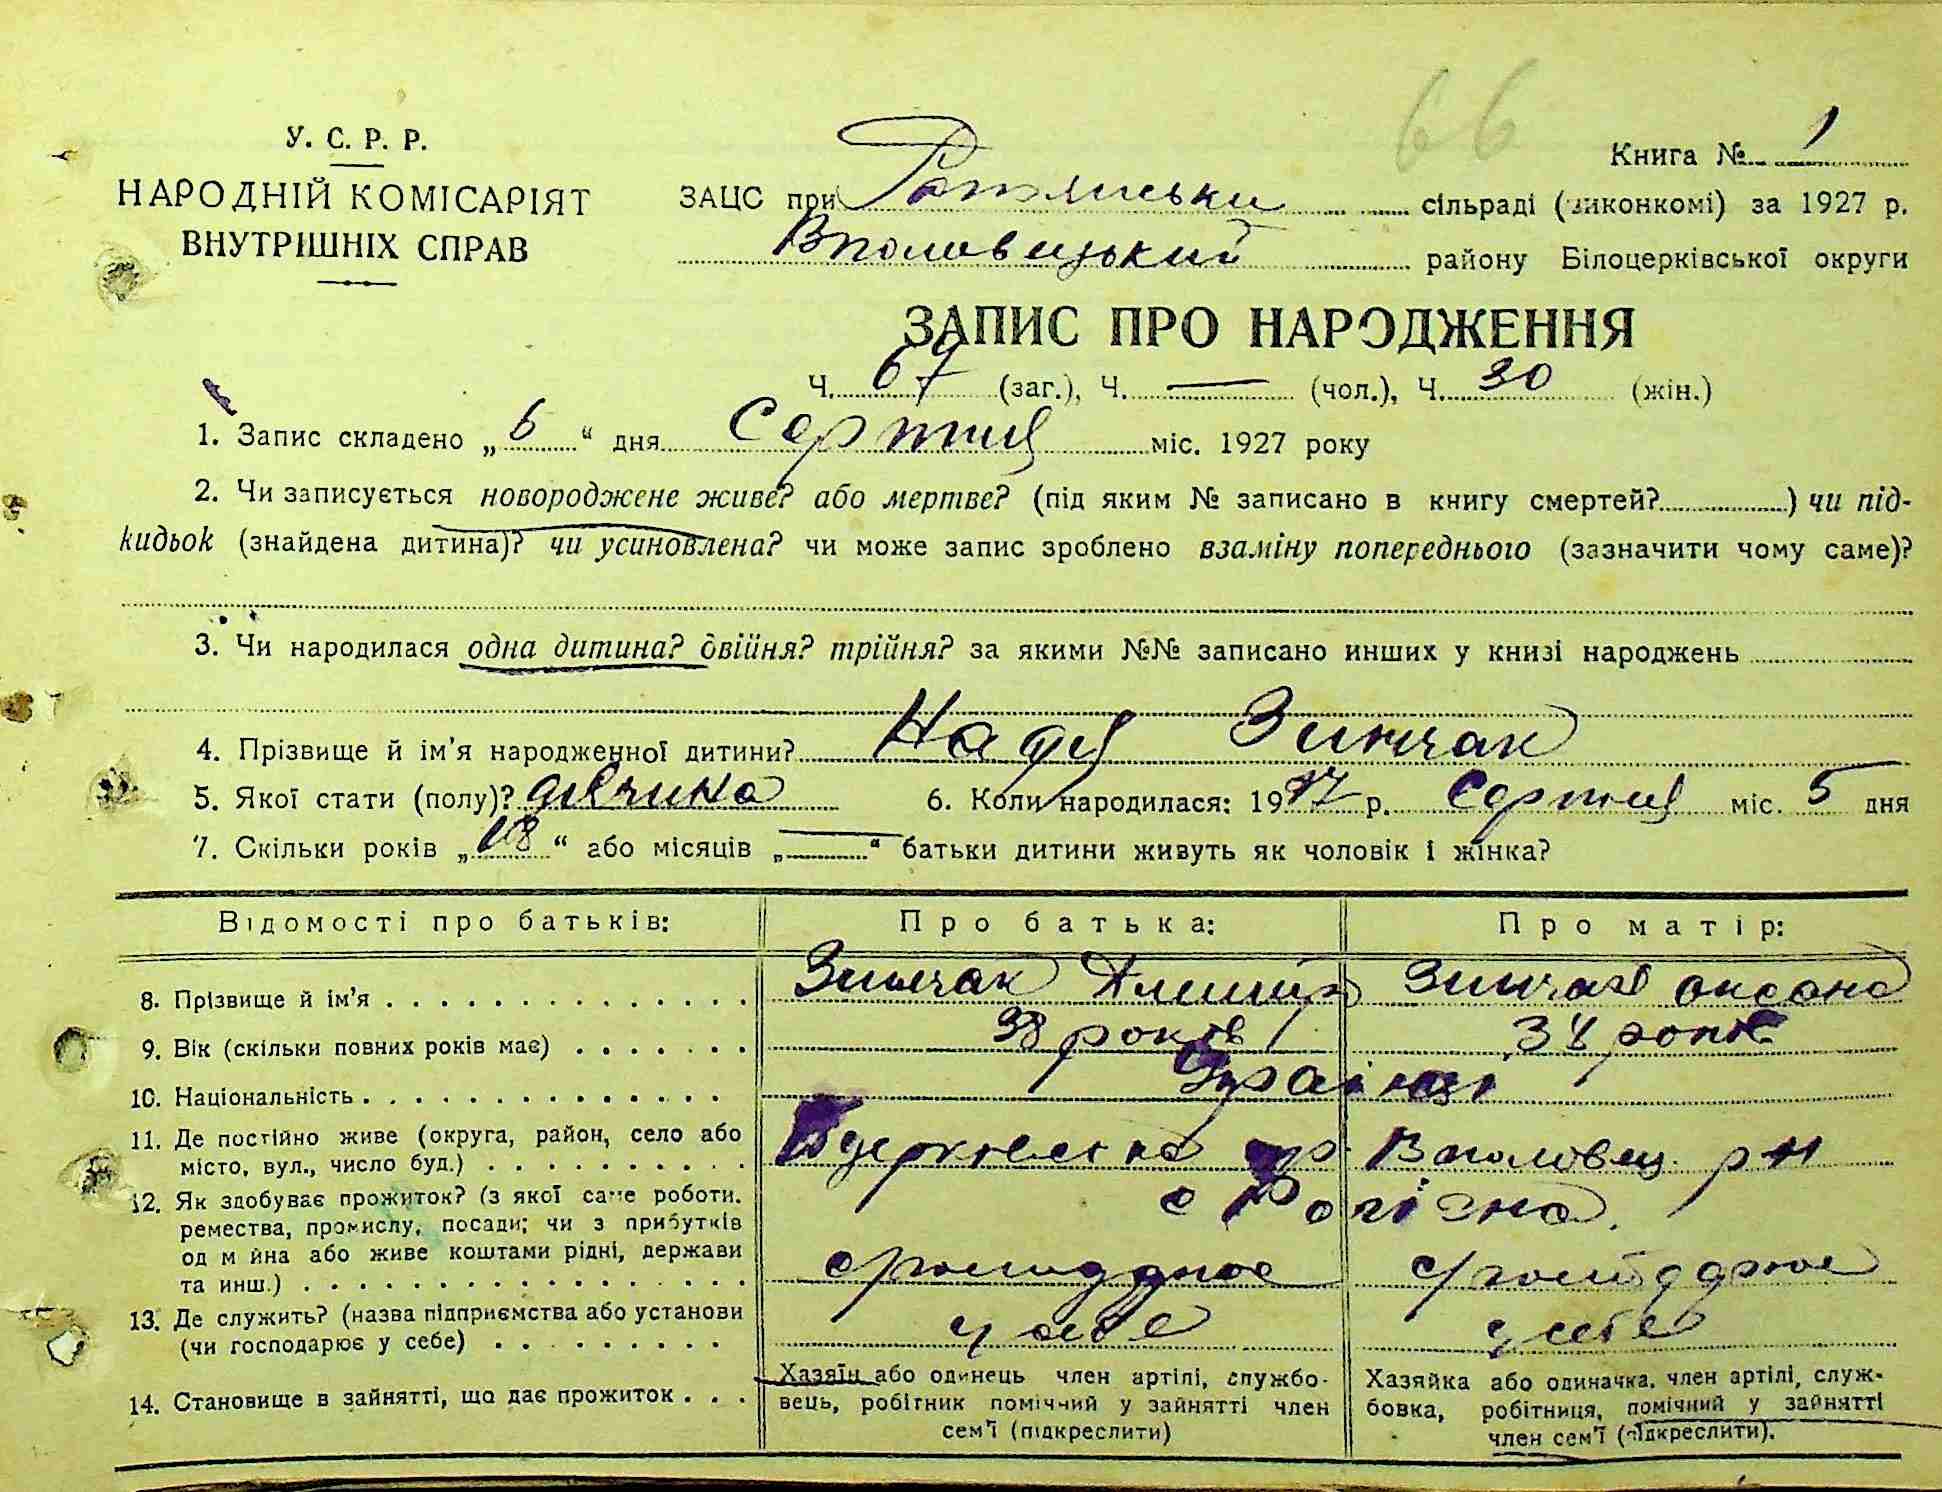 66
У. С. Р. Р.
НАРОДНІЙ КОМІСАРІЯТ
ВНУТРІШНІХ СПРАВ
Книга № 1
ЗАЦС при сільраді (виконкомі) за 1927 р.
Вполовецький району Білоцерківської округи
ЗАПИС ПРО НАРОДЖЕННЯ
Ч. 67 (заг.), Ч. — (чол.), Ч. 30 (жін.)
1. Запис складено „ 6 “ дня Серпня міс. 1927 року
2. Чи записується новороджене живе? або мертве? (під яким № записано в книгу смертей?) чи під-
кидьок (знайдена дитина)? чи усиновлена? чи може запис зроблено взаміну попереднього (зазначити чому саме)?
3. Чи народилася одна дитина? двійня? трійня? за якими №№ записано инших у книзі народжень
4. Прізвище й ім'я народженної дитини? Надія Зинчак
5. Якої стати (полу)? дівчина 6. Коли народилася: 1927 р. Серпня міс. 5 дня
7. Скільки років „ 18 “ або місяців „ — “ батьки дитини живуть як чоловік і жінка?
Відомості про батьків: Про батька: Про матір:
8. Прізвище й ім'я Зинчак Зинчак Оксана
9. Вік (скільки повних років має) 38 років років
10. Національність Українці
11. Де постійно живе (округа, район, село або
місто, вул., число буд.) Вполовец. р-н
с Рогізна.
12. Як здобуває прожиток? (з якої саме роботи,
ремества, промислу, посади; чи з прибутків
од майна або живе коштами рідні, держави
та инш.)
13. Де служить? (назва підприємства або установи
(чи господарює у себе) у себе у себе
14. Становище в зайнятті, що дає прожиток
Хазяїн або одинець член артілі, службо-
вець, робітник помічний у зайнятті член
сем'ї (підкреслити)
Хазяйка або одиначка, член артілі, служ-
бовка, робітниця, помічний у зайнятті
член сем'ї (підкреслити).